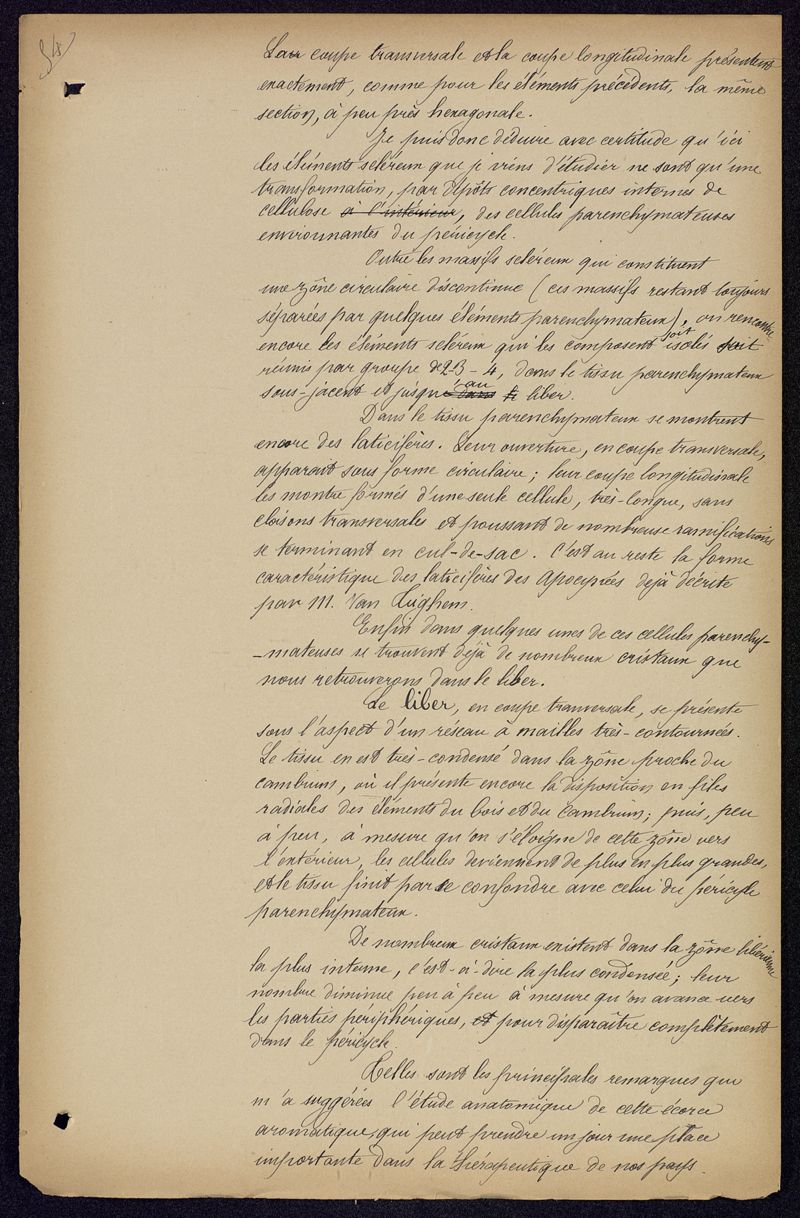 54
Leur coupe transversale et la coupe longitudinale présentent
exactement, comme pour les éléments précédents, la même
section, à peu près hexagonale.
Je puis donc déduire avec certitude qu'ici
les éléments scléreux que je viens d'étudier ne sont qu'une
transformation, par dépôts concentriques internes de
cellulose à l'intérieur, des cellules parenchymateuses
environnantes du péricycle.
Outre les massifs scléreux qui constituent
une zône circulaire discontinue (ces massifs restant toujours
séparées par quelques éléments parenchymateux), on rencontre
encore les éléments scléreux qui les composent soit isolés soit
réunis par groupe de 2-3-4, dans le tissu parenchymateux
sous-jacent et jusqu'au liber.
Dans le tissu parenchymateux se montrent
encore des laticifères. Leur ouverture, en coupe transversale,
apparait sous forme circulaire ; leur coupe longitudinale
les montre formés d'une seule cellule, très-longue, sans
cloisons transversales et poussant de nombreuse ramifications
se terminant en cul-de-sac. C'est au reste la forme
caractéristique des laticifères des Apocynées déjà décrite
par M. Van Tieghem.
Enfin dans quelques unes de ces cellules parenchy-
-mateuses se trouvent déjà de nombreux cristaux que
nous retrouverons dans le liber.
Le liber, en coupe tranversale, se présente
sous l'aspect d'un réseau à mailles très-contournées.
Le tissu en est très-condensé dans la zône proche du
cambium, où il présente encore la disposition en files
radiales des éléments du bois et du cambium ; puis, peu
à peu, à mesure qu'on s'éloigne de cette zône vers
l'extérieur, les cellules deviennent de plus en plus grandes,
et le tissu finit par se confondre avec celui du péricycle
parenchymateux.
De nombreux cristaux existent dans la zône libérienne
la plus interne, c'est-à-dire la plus condensée ; leur
nombre diminue peu à peu à mesure qu'on avance vers
les parties périphériques, et pour disparaître complètement
dans le péricycle.
Telles sont les principales remarques que
m'a suggérées l'étude anatomique de cette écorce
aromatique, qui peut prendre un jour une place
importante dans la thérapeutique de nos pays.